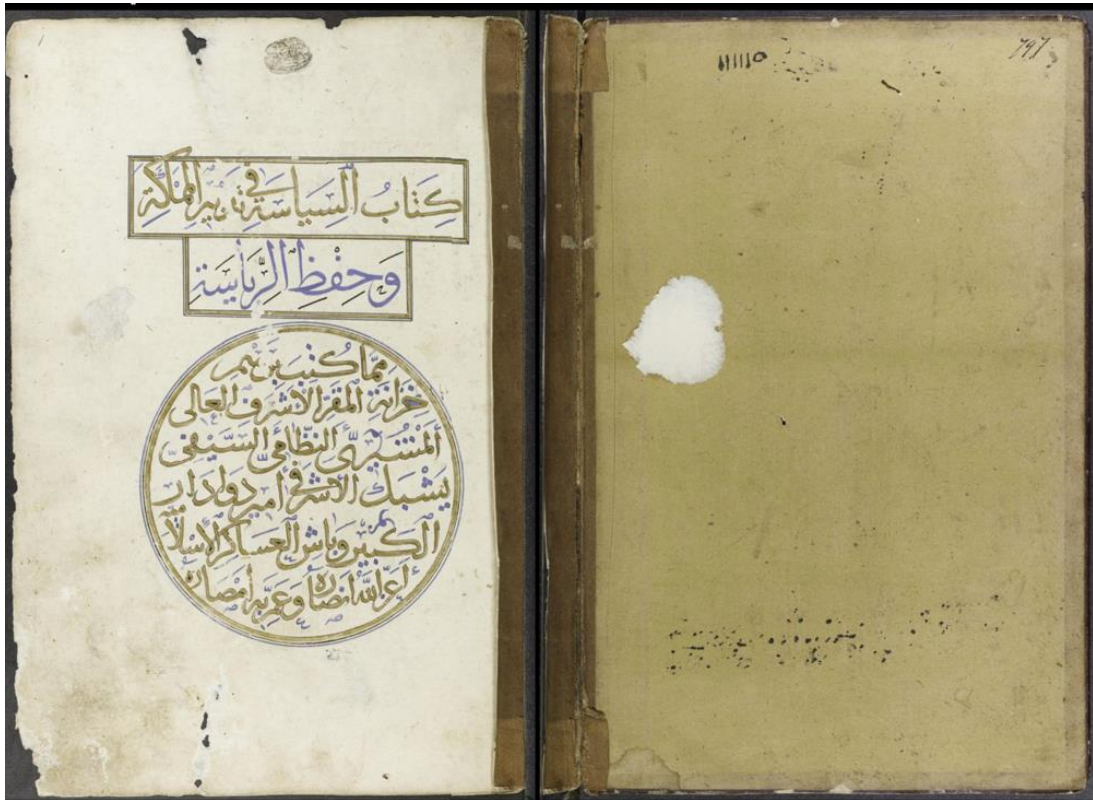 كِتَابُ السِّيَاسَةِ فِي تَدْبِيرِ المَمْلَكَةِ
وَحِفْظِ الرِّيَاسَةِ
مِمَّا كُتِبَ بِرَسْمِ
خِزَانَةِ المَقَرِّ الأَشْرَفِ العَالِى
المُشِيرِىِّ النِّظَامِىِّ السَّيْفِىِّ
يَشْبَكَ الأَشْرَفِى أَمِير دَوَادَار
الكَبِيرِ وَبَاشِ العَسَاكِرِ الإِسْلَامِ
أَعَزَّ اللهُ أَنْصَارَهُ وَعَمَّرَ بِهِ أَمْصَارَهُ
797